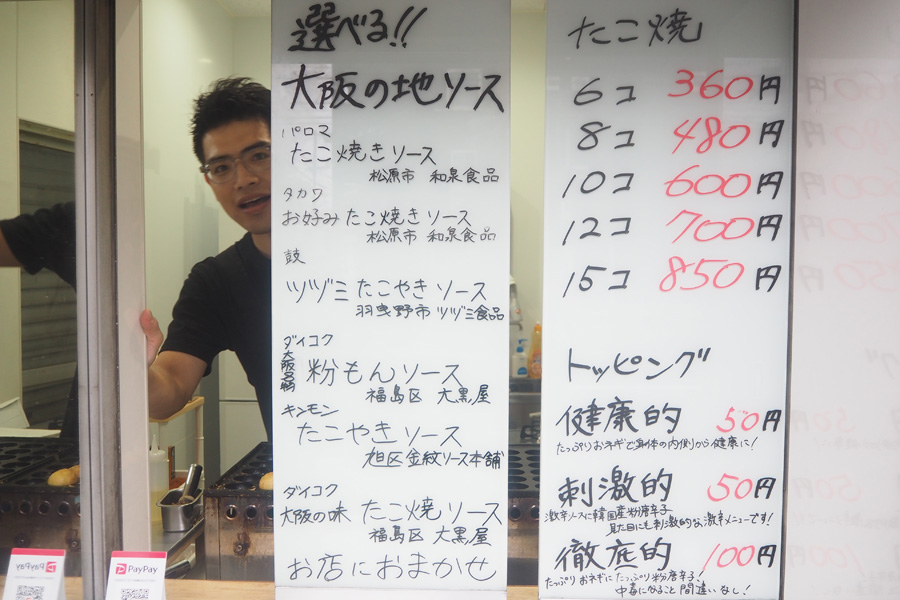 選べる!!
大阪の地ソース
パロマ
たこ焼きソース
松原市 和泉食品
タカワ
お好みたこ焼きソース
松原市 和泉食品
鼓
ツヅミたこやきソース
羽曳野市 ツヅミ食品
ダイコク
粉もんソース
福島区 大黒屋
キンモン
たこやきソース
旭区 金紋ソース本舗
ダイコク
大阪の味 たこ焼ソース
福島区 大黒屋
お店におまかせ
たこ焼
6コ 360円
8コ 480円
10コ 600円
12コ 700円
15コ 850円
トッピング
健康的 50円
たっぷりおネギで身体の内側から健康に!
刺激的 50円
激辛ソースに韓国産粉唐辛子
見た目にも刺激的な激辛メニューです!
徹底的 100円
たっぷりおネギにたっぷり粉唐辛子!
中毒になること間違いなし!
PayPay
PayPay